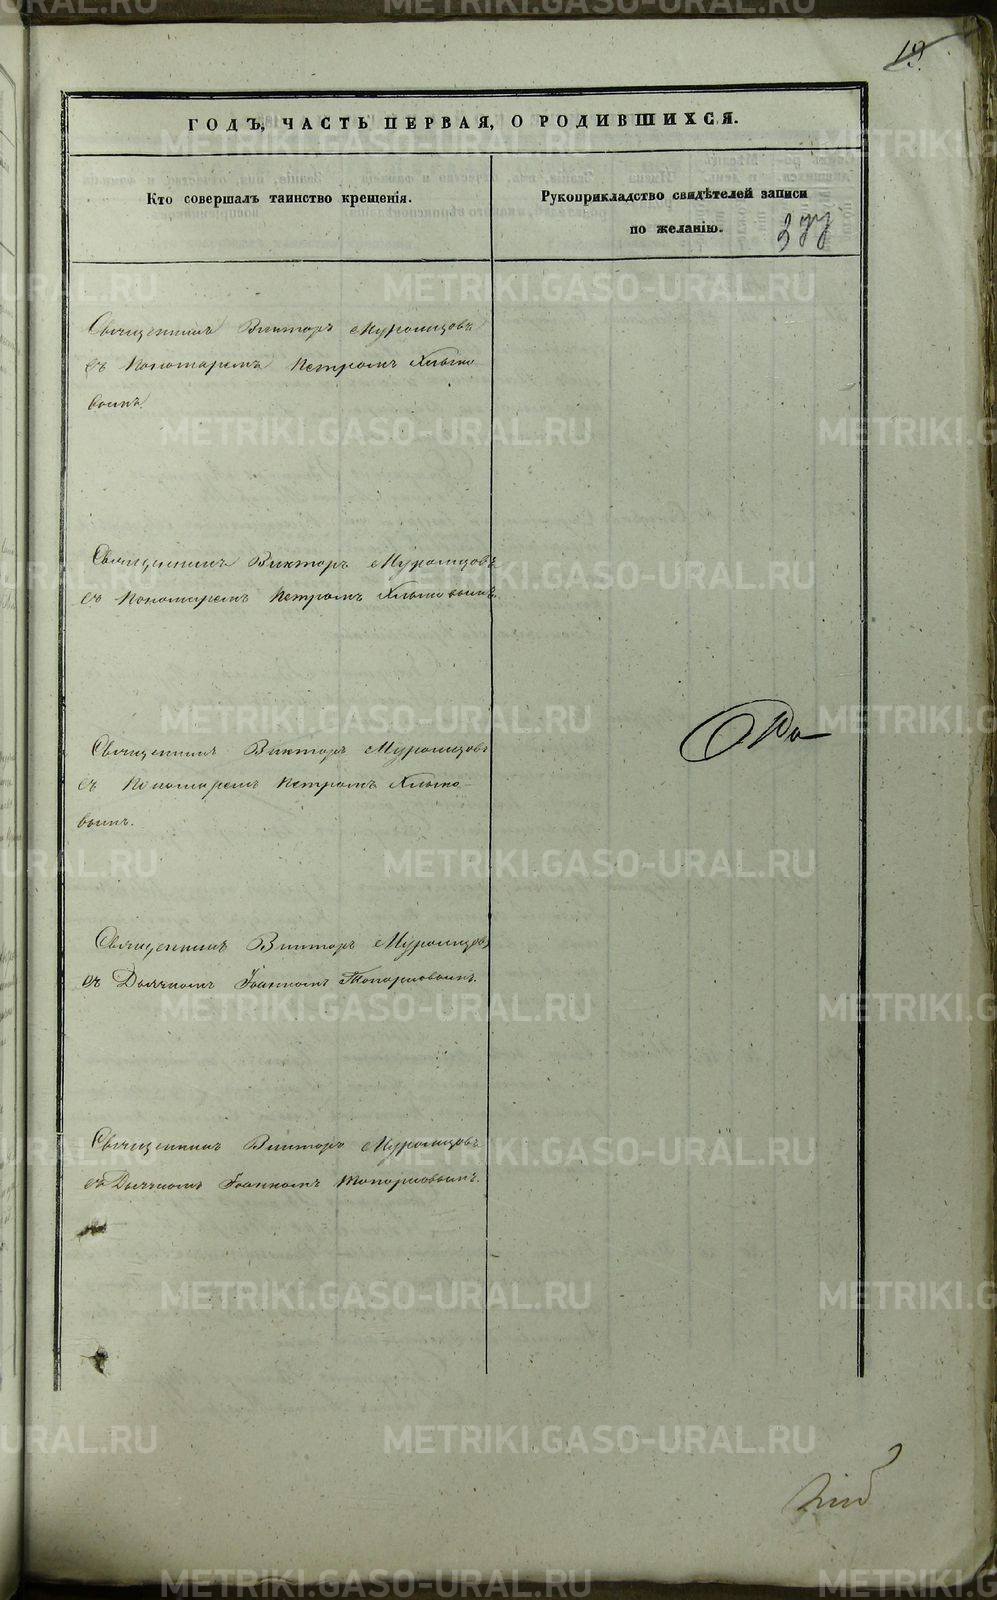 19.
ГОДЪ, ЧАСТЬ ПЕРВАЯ, О РОДИВШИХСЯ.
Кто совершалъ таинство крещенія.
Рукоприкладство свидѣтелей записи
по желанію.
377
Священникъ Викторъ Муромцовъ
съ Пономаремъ Петромъ Хлыно
вымъ.
Священникъ Викторъ Муромцовъ
съ Пономаремъ Петромъ Хлыновымъ.
Священникъ Викторъ Муромцовъ
съ Пономаремъ Петромъ Хлыно-
вымъ.
Священникъ Викторъ Муромцовъ
съ Дьячкомъ Іоанномъ Топорковымъ.
Священникъ Викторъ Муромцовъ
съ Дьячкомъ Іоанномъ Топорковымъ.
METRIKI.GASO-URAL.RU